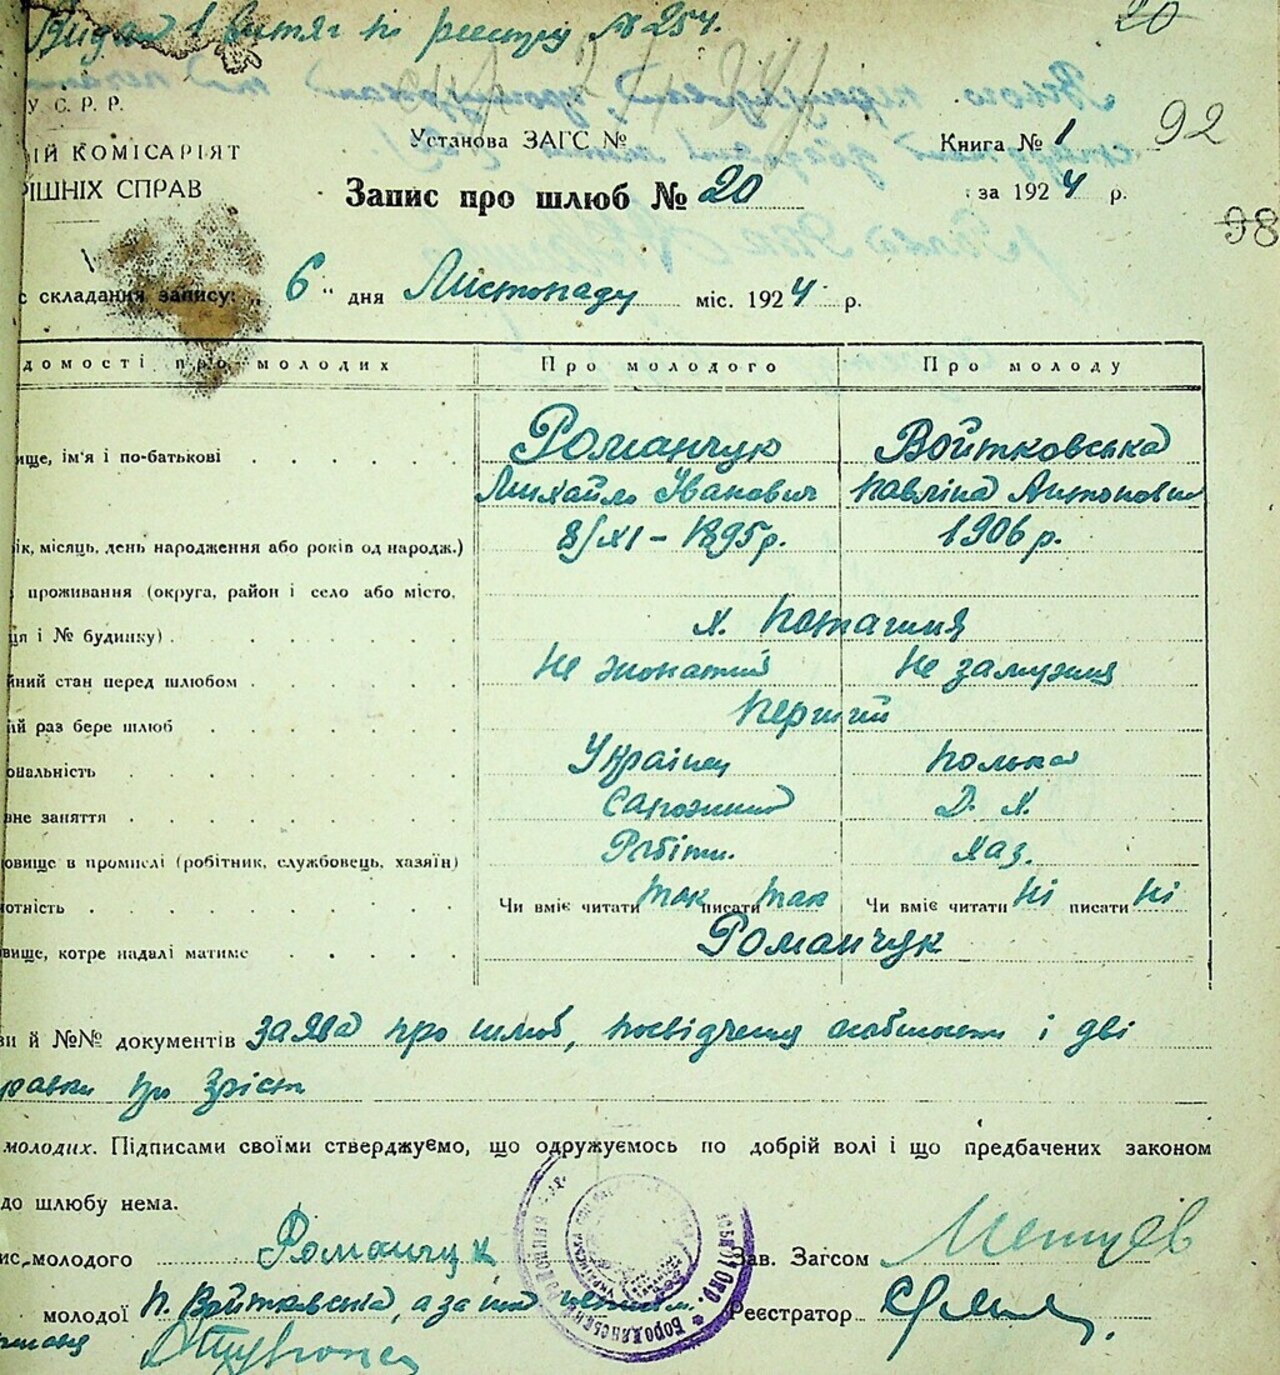 Видан 1 витяг по реєстру № 254.
20
У. С. Р. Р.
ІЙ КОМІСАРІЯТ
РІШНІХ СПРАВ
Установа ЗАГС №
Книга № 1
92
Запис про шлюб № 20
за 1924 р.
98
с складання запису: „ 6 “ дня Листопаду міс. 1924 р.
домості про молодих Про молодого Про молоду
ище, ім'я і по-батькові Романчук Войтковська
Михайло Іванович Павліна Антоновн
ік, місяць, день народження або років од народж.) 8/XI – 1895 р. 1906 р.
проживання (округа, район і село або місто,
ця і № будинку) х. Поташня
йний стан перед шлюбом Не жонатий Не замужня
ий раз бере шлюб Перший
ональність Українец Полька
вне заняття Сапожний Д. Х.
овище в промислі (робітник, службовець, хазяїн) Робітн. Хаз.
отність Чи вміє читати так писати так Чи вміє читати ні писати ні
вище, котре надалі матиме Романчук
ви й №№ документів заява про шлюб, посвідчення особистости і дві
равки про зріст
молодих. Підписами своїми стверджуємо, що одружуємось по добрій волі і що предбачених законом
до шлюбу нема.
ис молодого Романчук Зав. Загсом
молодої П. Войтковська, а за Реєстратор